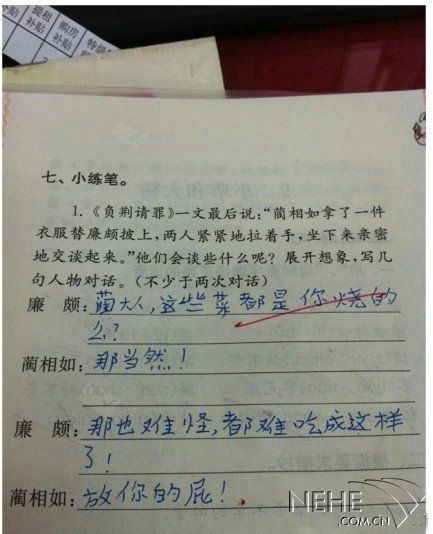 提租补贴
购房补贴
特级
七、小练笔。
1.《负荆请罪》一文最后说:“蔺相如拿了一件
衣服替廉颇披上,两人紧紧地拉着手,坐下来亲密
地交谈起来。”他们会谈些什么呢?展开想象,写几
句人物对话。(不少于两次对话)
廉 颇:蔺大人,这些菜都是你烧的
么?
蔺相如:那当然!
廉 颇:那也难怪,都难吃成这样
了!
蔺相如:放你的屁!
NEHE
.COM.CN